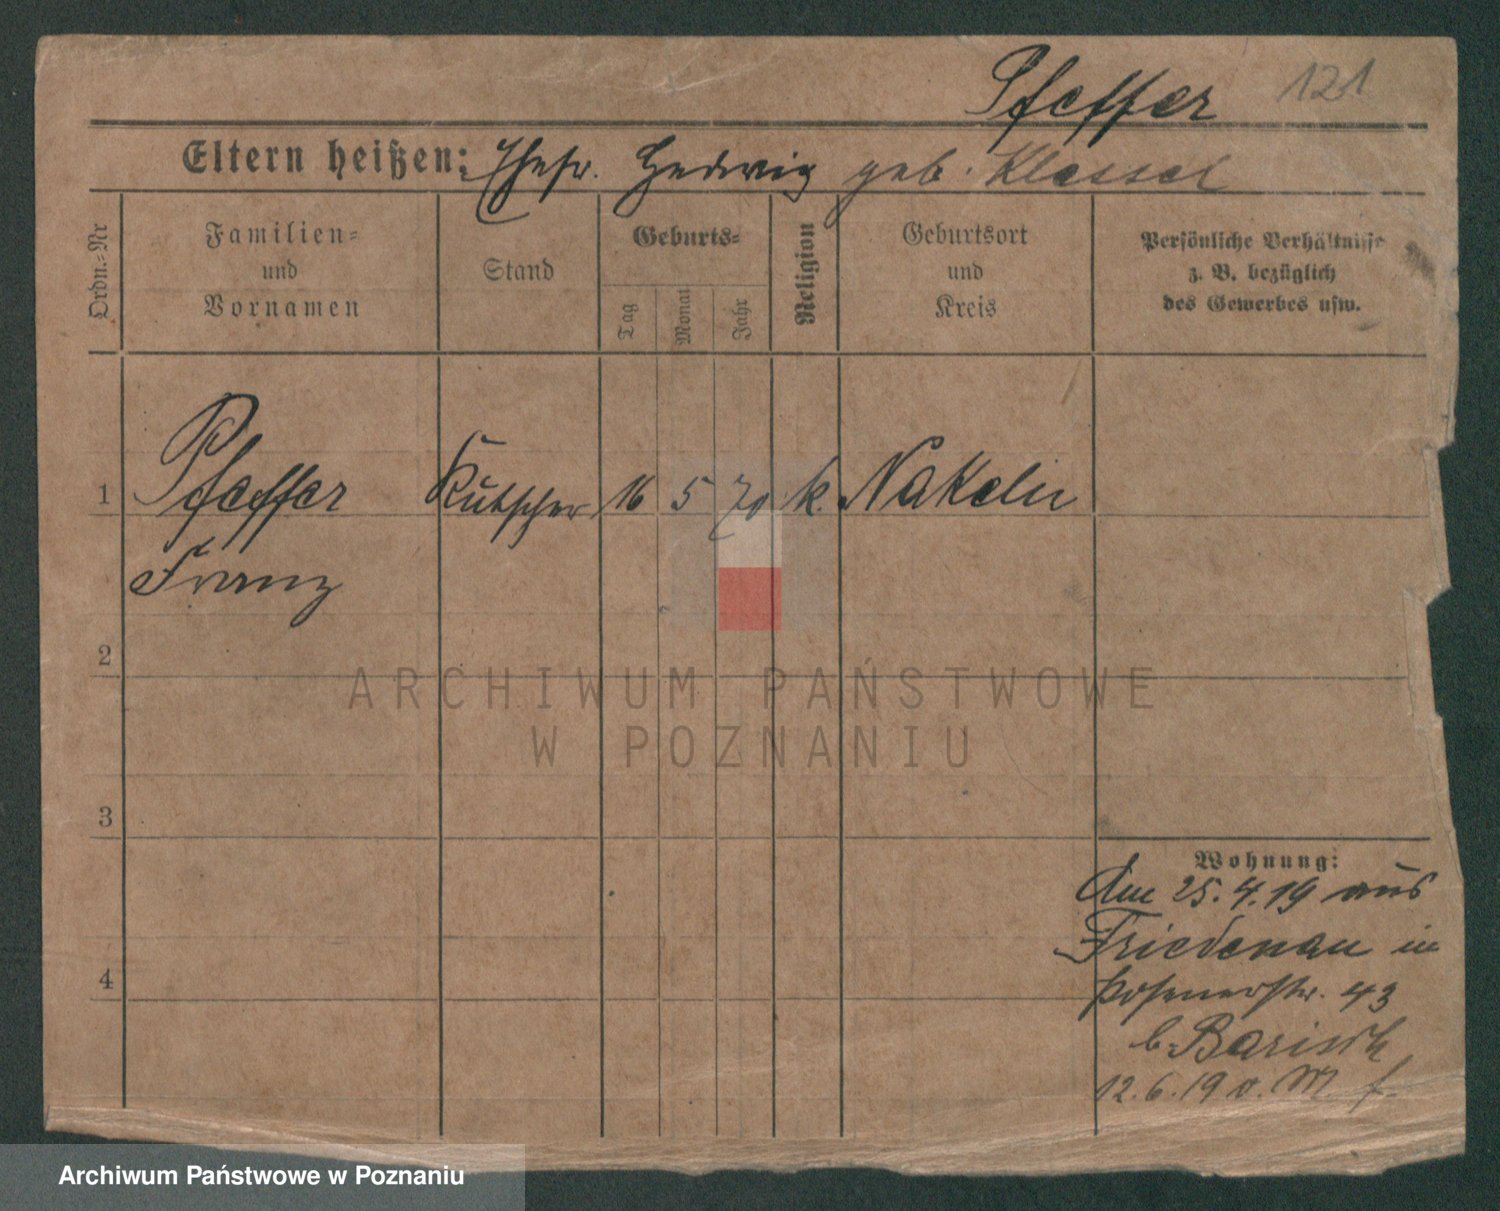 Pfeffer 121
Eltern heißen: Ehefr. Hedwig geb. Klessel
Ordn.-Nr
Familien-
und
Vornamen
Stand
Geburts-
Tag
Monat
Jahr
Religion
Geburtsort
und
Kreis
Persönliche Verhältnisse
z. B. bezüglich
des Gewerbes usw.
1 Pfeffer Kutscher 16 5 70 k. Nakeln
Franz
2
3
4
Wohnung:
Am 25.4.19 aus
Friedenau in
Posenerstr. 43
b. Barisch
12.6.19 o. M
ARCHIWUM PAŃSTWOWE
W POZNANIU
Archiwum Państwowe w Poznaniu